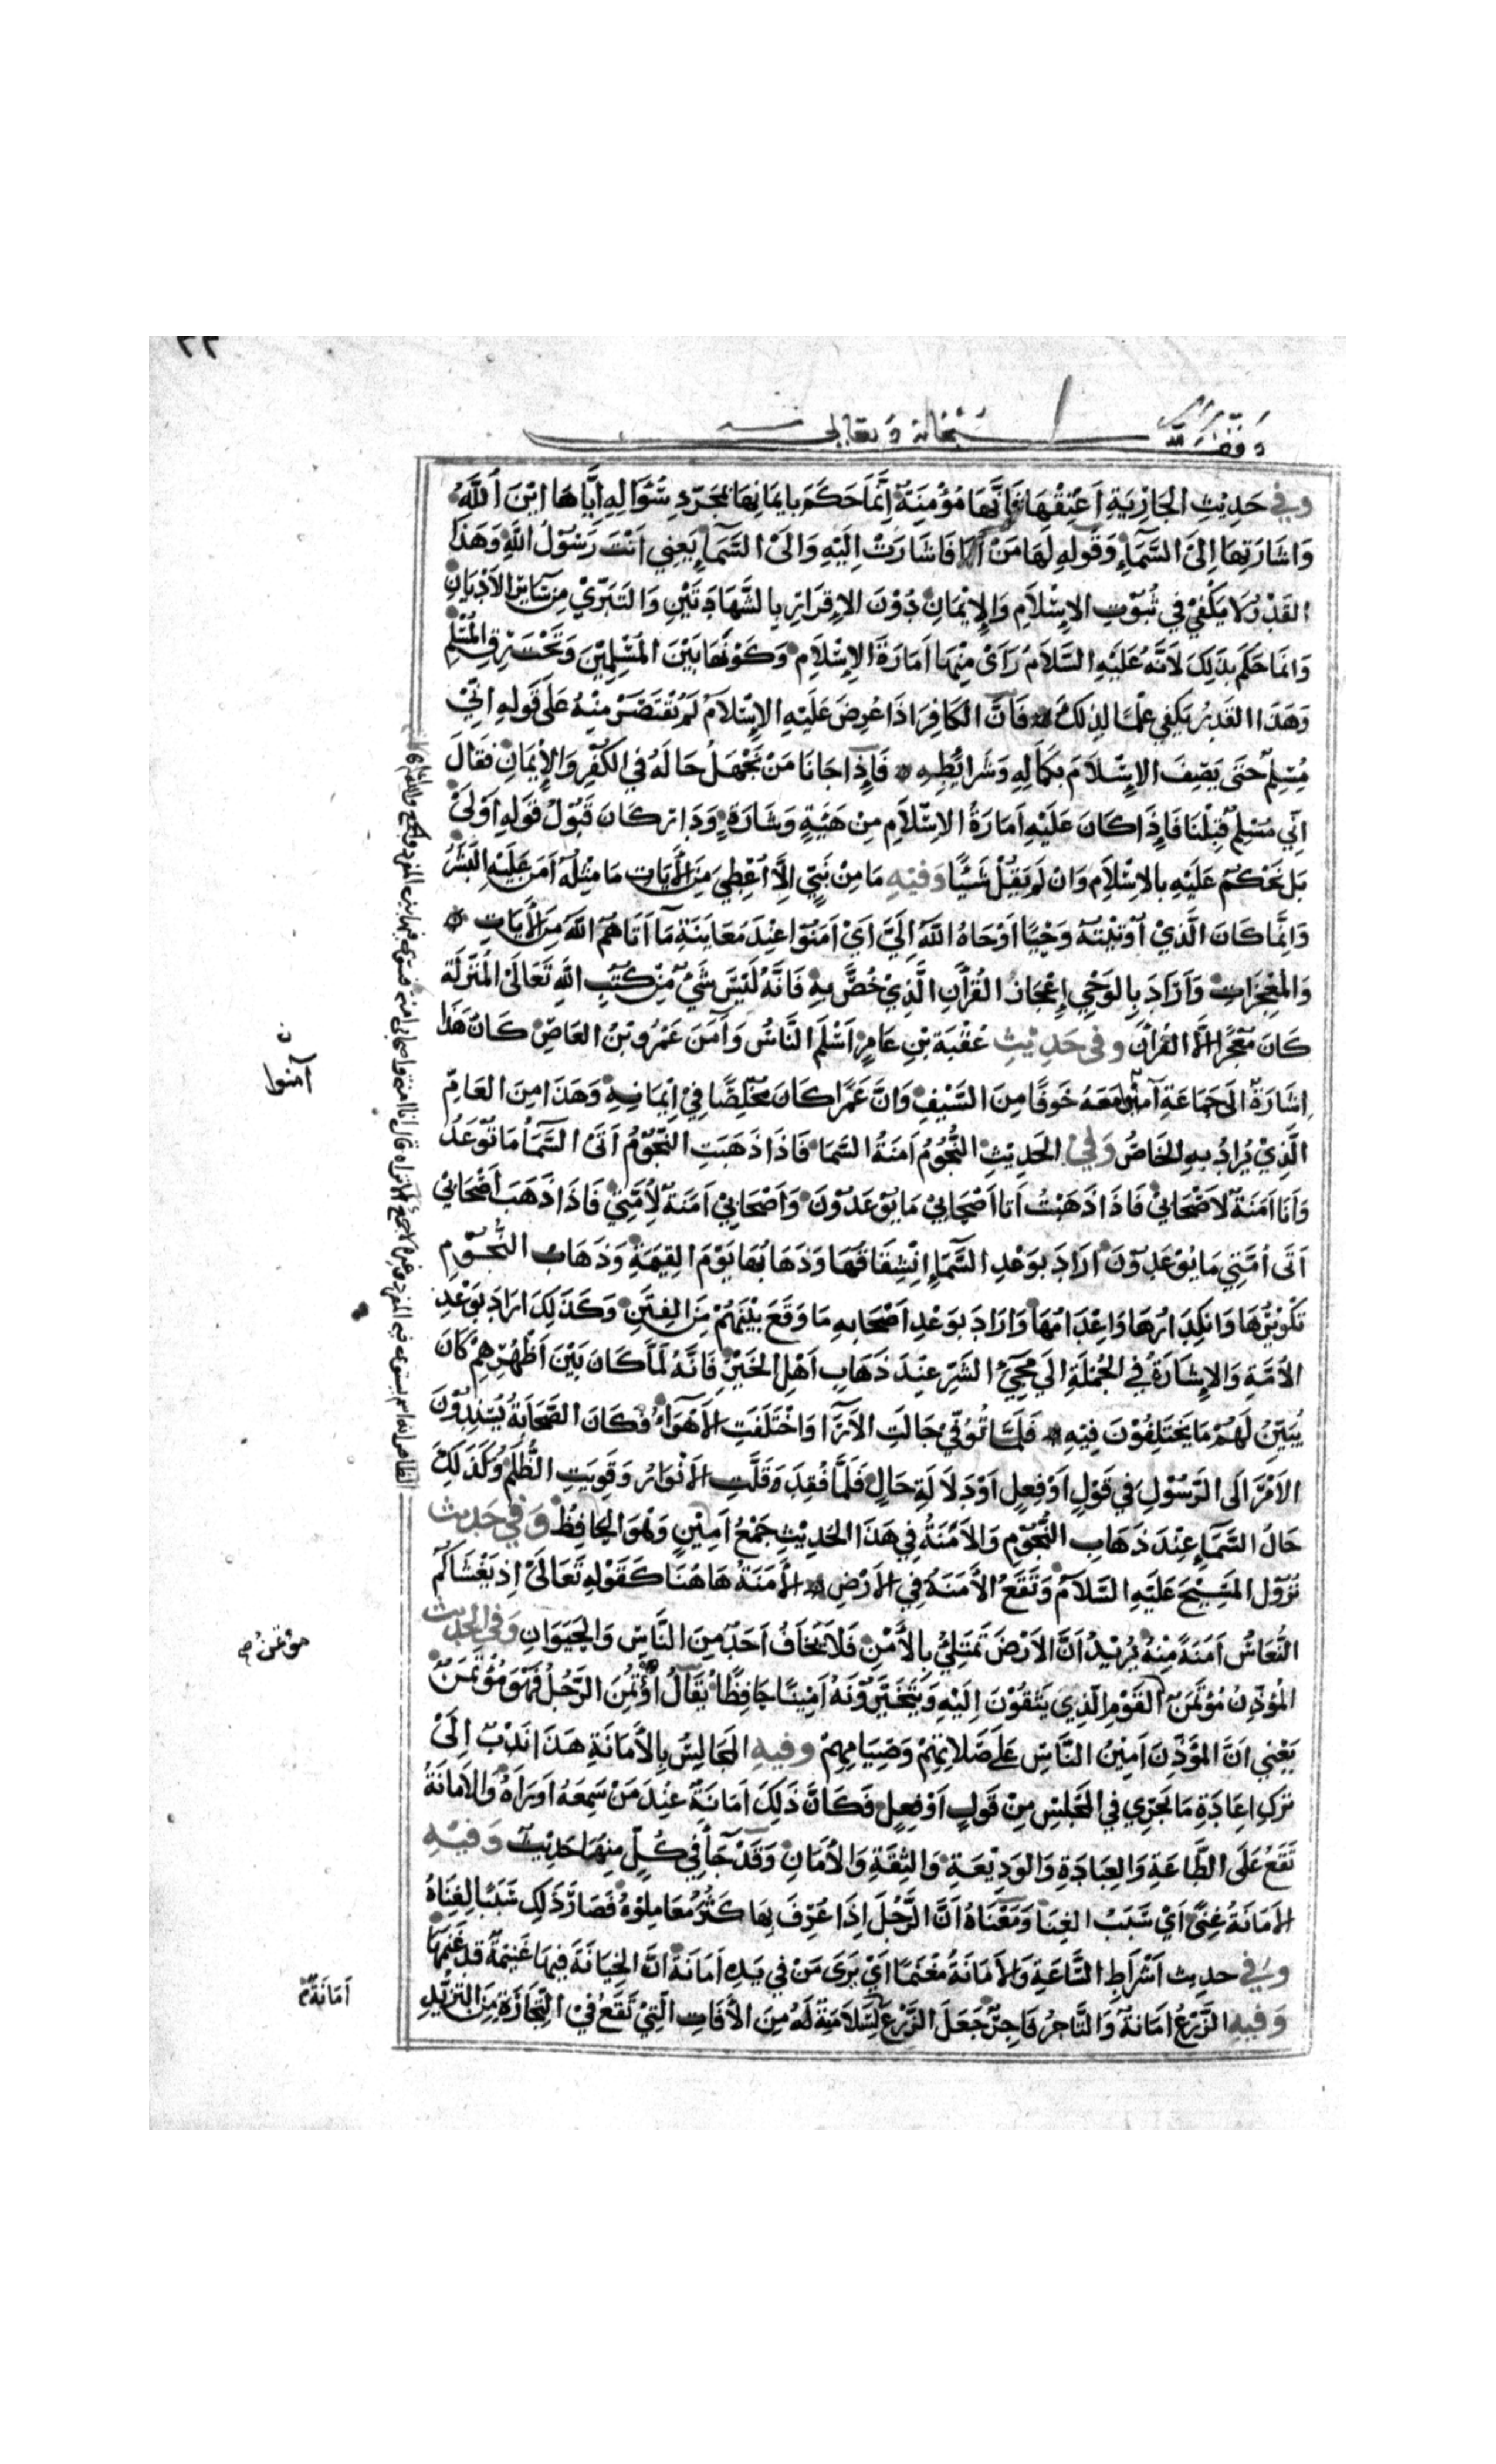 ٢٢
وقف لله سبحانه وتعالى
وفي حَدِيْثِ الجَارِيَةِ اَعْتِقْهَا فَاِنَّهَا مُؤْمِنَةٌ اِنَّمَا حَكَمَ بِايمَانِهَا بمُجَرَّدِ سُؤَالِهِ اِيَّاهَا اَيْنَ اللهُ
وَاشَارَتِهَا اِلَى السَّمَاءِ وَقَوْلِهِ لَهَا مَنْ اَنَا فَاشَارَتْ اِلَيْهِ وَالَى السَّمَاءِ يَعْنِي اَنْتَ رَسُوْلُ اللهِ وَهَذَا
القَدْرُ لَا يَكْفِيْ فِي ثُبُوْتِ الاِسْلَامِ وَالاِيْمَانِ دُوْنَ الاِقْرَارِ بِالشَّهَادَتَيْنِ وَالتَبَرِّيْ مِنْ سَائِرِ الاَدْيَانِ
وَانمَا حَكَمَ بِذَلِكَ لِاَنَّهُ عَلَيْهِ السَّلَامُ رَاَى مِنْهَا اَمَارَةَ الاِسْلَامِ وَكَوْنَهَا بَيْنَ المُسْلِمِيْنَ وَتَحْتَ رِقِّ المُسْلِمِ
وَهَذَا القَدْرُ يَكْفِي عِلْمًا لِذَلِكَ فَاِنَّ الكَافِرَ اذَا عُرِضَ عَلَيْهِ الاِسْلَامُ لَمْ يُقْتَصَرْ مِنْهُ عَلَى قَوْلِهِ اِنِّيْ
مُسْلِمٌ حَتَى يَصِفَ الاِسْلَامَ بِكَمَالِهِ وَشَرَائِطِهِ فَاِذَا جَانَا مَنْ نَجْهَلُ حَالَهُ فِي الكُفْرِ وَالاِيْمَانِ فَقَالَ
اِنِّي مُسْلِمٌ قَبِلْنَا فَاِذَا كَانَ عَلَيْهِ اَمَارَةُ الاِسْلَامِ مِنْ هَيْئَةٍ وَشَارَةٍ وَدَارٍ كَانَ قَبُوْلُ قَوْلِهِ اَوْلَى
بَلْ نَحْكُمُ عَلَيْهِ بِالاِسْلَامِ وَانْ لَمْ يَقُلْ شَيْئًا وَفِيْهِ مَا مِنْ نَبِيٍّ اِلَّا اُعْطِيَ مِنَ الآيَاتِ مَا مِثْلُهُ آمَنَ عَلَيْهِ البَشَرُ
وَاِنَّمَا كَانَ الَّذِيْ اُوْتِيْتُهُ وَحْيًا اَوْحَاهُ اللهُ اِلَيَّ اَيْ اَمَنُوْا عِنْدَ مُعَايَنَةِ مَا آتَاهُمُ اللهُ مِنَ الآيَاتِ
وَالمُعْجِزَاتِ وَاَرَادَ بِالوَحْيِ اِعْجَازَ القُرْآنِ الَّذِيْ خُصَّ بِهِ فَانَّهُ لَيْسَ شَيْءٌ مِنْ كُتُبِ اللهِ تَعَالَى المُنَزَّلَةِ
كَانَ مُعْجِزًا اِلَّا القُرآنَ وَفِي حَدِيْثِ عُقْبَةَ بْنِ عَامِرٍ اَسْلَمَ النَّاسُ وَآمَنَ عَمْرُو بْنُ العَاصِ كَانَ هَذَا
اِشَارَةً الَى جَمَاعَةٍ آمَنُوا مَعَهُ خَوْفًا مِنَ السَّيْفِ وَانَّ عَمْرًا كَانَ مُخْلِصًا فِيْ اِيمَانِهِ وَهَذَا مِنَ العَامِّ
الَّذِيْ يُرَادُ بِهِ الخَاصُّ وَفِي الحَدِيْثِ النُّجُوْمُ اَمَنَةُ السَّمَا فَاذَا ذَهَبَتِ النُّجُوْمُ اَتَى السَّمَاءَ مَا تُوْعَدُ
وَاَنَا اَمَنَةٌ لِاَصْحَابِيْ فَاذَا ذَهَبْتُ اَتَا اَصْحَابِيْ مَا يُوْعَدُوْنَ وَاَصْحَابِيْ اَمَنَةٌ لِاُمَّتِيْ فَاذَا ذَهَبَ اَصْحَابِيْ
اَتَى اُمَّتِي مَا يُوْعَدُوْنَ اَرَادَ بِوَعْدِ السَّمَاءِ اِنْشِقَاقُهَا وَذَهَابُهَا يَوْمَ القِيمَةِ وَذَهَابُ النُّجُوْمِ
تَكْوِيْرُهَا وَانكِدَارُهَا وَاِعْدَامُهَا وَارَادَ بِوَعْدِ اَصْحَابِهِ مَا وَقَعَ بَيْنَهُمْ مِنَ الفِتَنِ وَكَذَلِكَ اَرَادَ بِوَعْدِ
الاُمَّةِ وَالاِشَارَةُ فِي الجُمْلَةِ الَى مَجِيْءِ الشَّرِّ عِنْدَ ذَهَابِ اَهْلِ الخَيْرِ فَانَّهُ لَمَّا كَانَ بَيْنَ اَظْهُرِهِمْ كَانَ
يُبَيِّنُ لَهُمْ مَا يَخْتَلِفُوْنَ فِيْهِ فَلَمَّا تُوُفِّيَ جَالَتِ الآرَا وَاخْتَلَفَتِ الاَهْوَاءُ فَكَانَ الصَّحَابَةُ يُسْنِدُوْنَ
الاَمْرَ الَى الرَّسُوْلِ فِي قَوْلٍ اَوْ فِعْلٍ اَوْ دَلَالَةِ حَالٍ فَلَمَّا فُقِدَ قَلَّتِ الاَنْوَارُ وَقَوِيَتِ الظُّلَمُ وَكَذَلِكَ
حَالُ السَّمَاءِ عِنْدَ ذَهَابِ النُّجُوْمِ وَالاَمَنَةُ فِي هَذَا الحَدِيْثِ جَمْعُ اَمِيْنٍ وَهُوَ الحَافِظُ وَفِي حَدِيْثِ
نُزُوْلِ المَسِيْحِ عَلَيْهِ السَّلَامُ وَتَقَعُ الاَمَنَةُ فِي الاَرْضِ الاَمَنَةُ هَاهُنَا كَقَوْلِهِ تَعَالَى اِذ يَغْشَاكُمُ
النُّعَاسُ اَمَنَةً مِنْهُ يُرِيْدُ اَنَّ الاَرْضَ تَمْتَلِئُ بِالاَمْنِ فَلَا يَخَافُ اَحَدٌ مِنَ النَّاسِ وَالحَيَوَانِ وَفِي الحَدِيْثِ
المُؤَذِّنُ مُؤْتَمَنٌ القَوْمِ الَّذِي يَثِقُوْنَ اِلَيْهِ وَيَتَّخِذُوْنَهُ اَمِيْنًا حَافِظًا يُقَالُ اُؤْتُمِنَ الرَّجُلُ فَهُوَ مُؤْتَمَنٌ
يَعْنِي اَنَّ المُؤَذِّنَ اَمِيْنُ النَّاسِ عَلَى صَلَاتِهِمْ وَصِيَامِهِمْ وفيه المَجَالِسُ بِالاَمَانَةِ هَذَا نَدْبٌ اِلَى
تَرْكِ اِعَادَةِ مَا يَجْرِي فِي المَجْلِسِ مِنْ قَوْلٍ اَوْ فِعْلٍ فَكَانَ ذَلِكَ اَمَانَةٌ عِنْدَ مَنْ سَمِعَهُ اَوْ رَاَهُ وَالاَمَانَةُ
تَقَعُ عَلَى الطَّاعَةِ وَالعِبَادَةِ وَالوَدِيْعَةِ وَالثِقَةِ وَالاَمَانِ وَقَدْ جَاءَ فِي كُلٍّ مِنْهَا حَدِيْثٌ وَفِيْهِ
الاَمَانَةُ غِنًى اَيْ سَبَبُ الغِنَا وَمَعْنَاهُ اَنَّ الرَّجُلَ اِذَا عُرِفَ بِهَا كَثُرَ مُعَامِلُوْهُ فَصَارَ ذَلِكَ سَبَبًا لِغِنَاهُ
وفي حديث اَشْرَاطِ السَّاعَةِ وَالاَمَانَةُ مَغْنَمًا اَيْ يَرَى مَنْ فِي يَدِهِ اَمَانَةٌ اَنَّ الخِيَانَةَ فِيهَا غَنِيْمَةٌ قَدْ غَنِمَهَا
وَفِيهِ الزَّرْعُ اَمَانَةٌ وَالتَّاجِرُ فَاجِرٌ جَعَلَ الزَّرْعَ لِسَلَامَتِهِ لَهُ مِنَ الآفَاتِ الَّتِيْ تَقَعُ فِيْ التِّجَارَةِ مِنَ التَّزَيُّدِ
ن
آمنوا
مؤتمن
اَمَانَةٌ